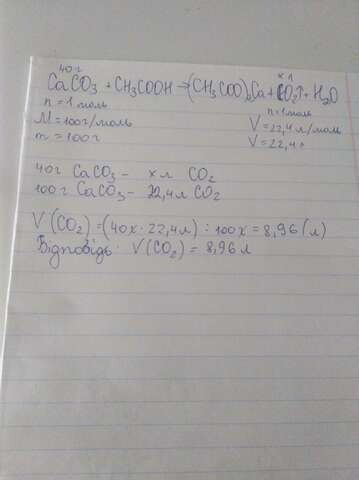 40г х л
CaCO₃ + CH₃COOH → (CH₃COO)₂Ca + CO₂↑ + H₂O
n = 1 моль n = 1 моль
M = 100г/моль V = 22,4 л/моль
m = 100г V = 22,4 л
40г CaCO₃ – х л CO₂
100г CaCO₃ – 22,4л CO₂
V (CO₂) = (40х · 22,4л) : 100х = 8,96 (л)
Відповідь: V(CO₂) = 8,96 л